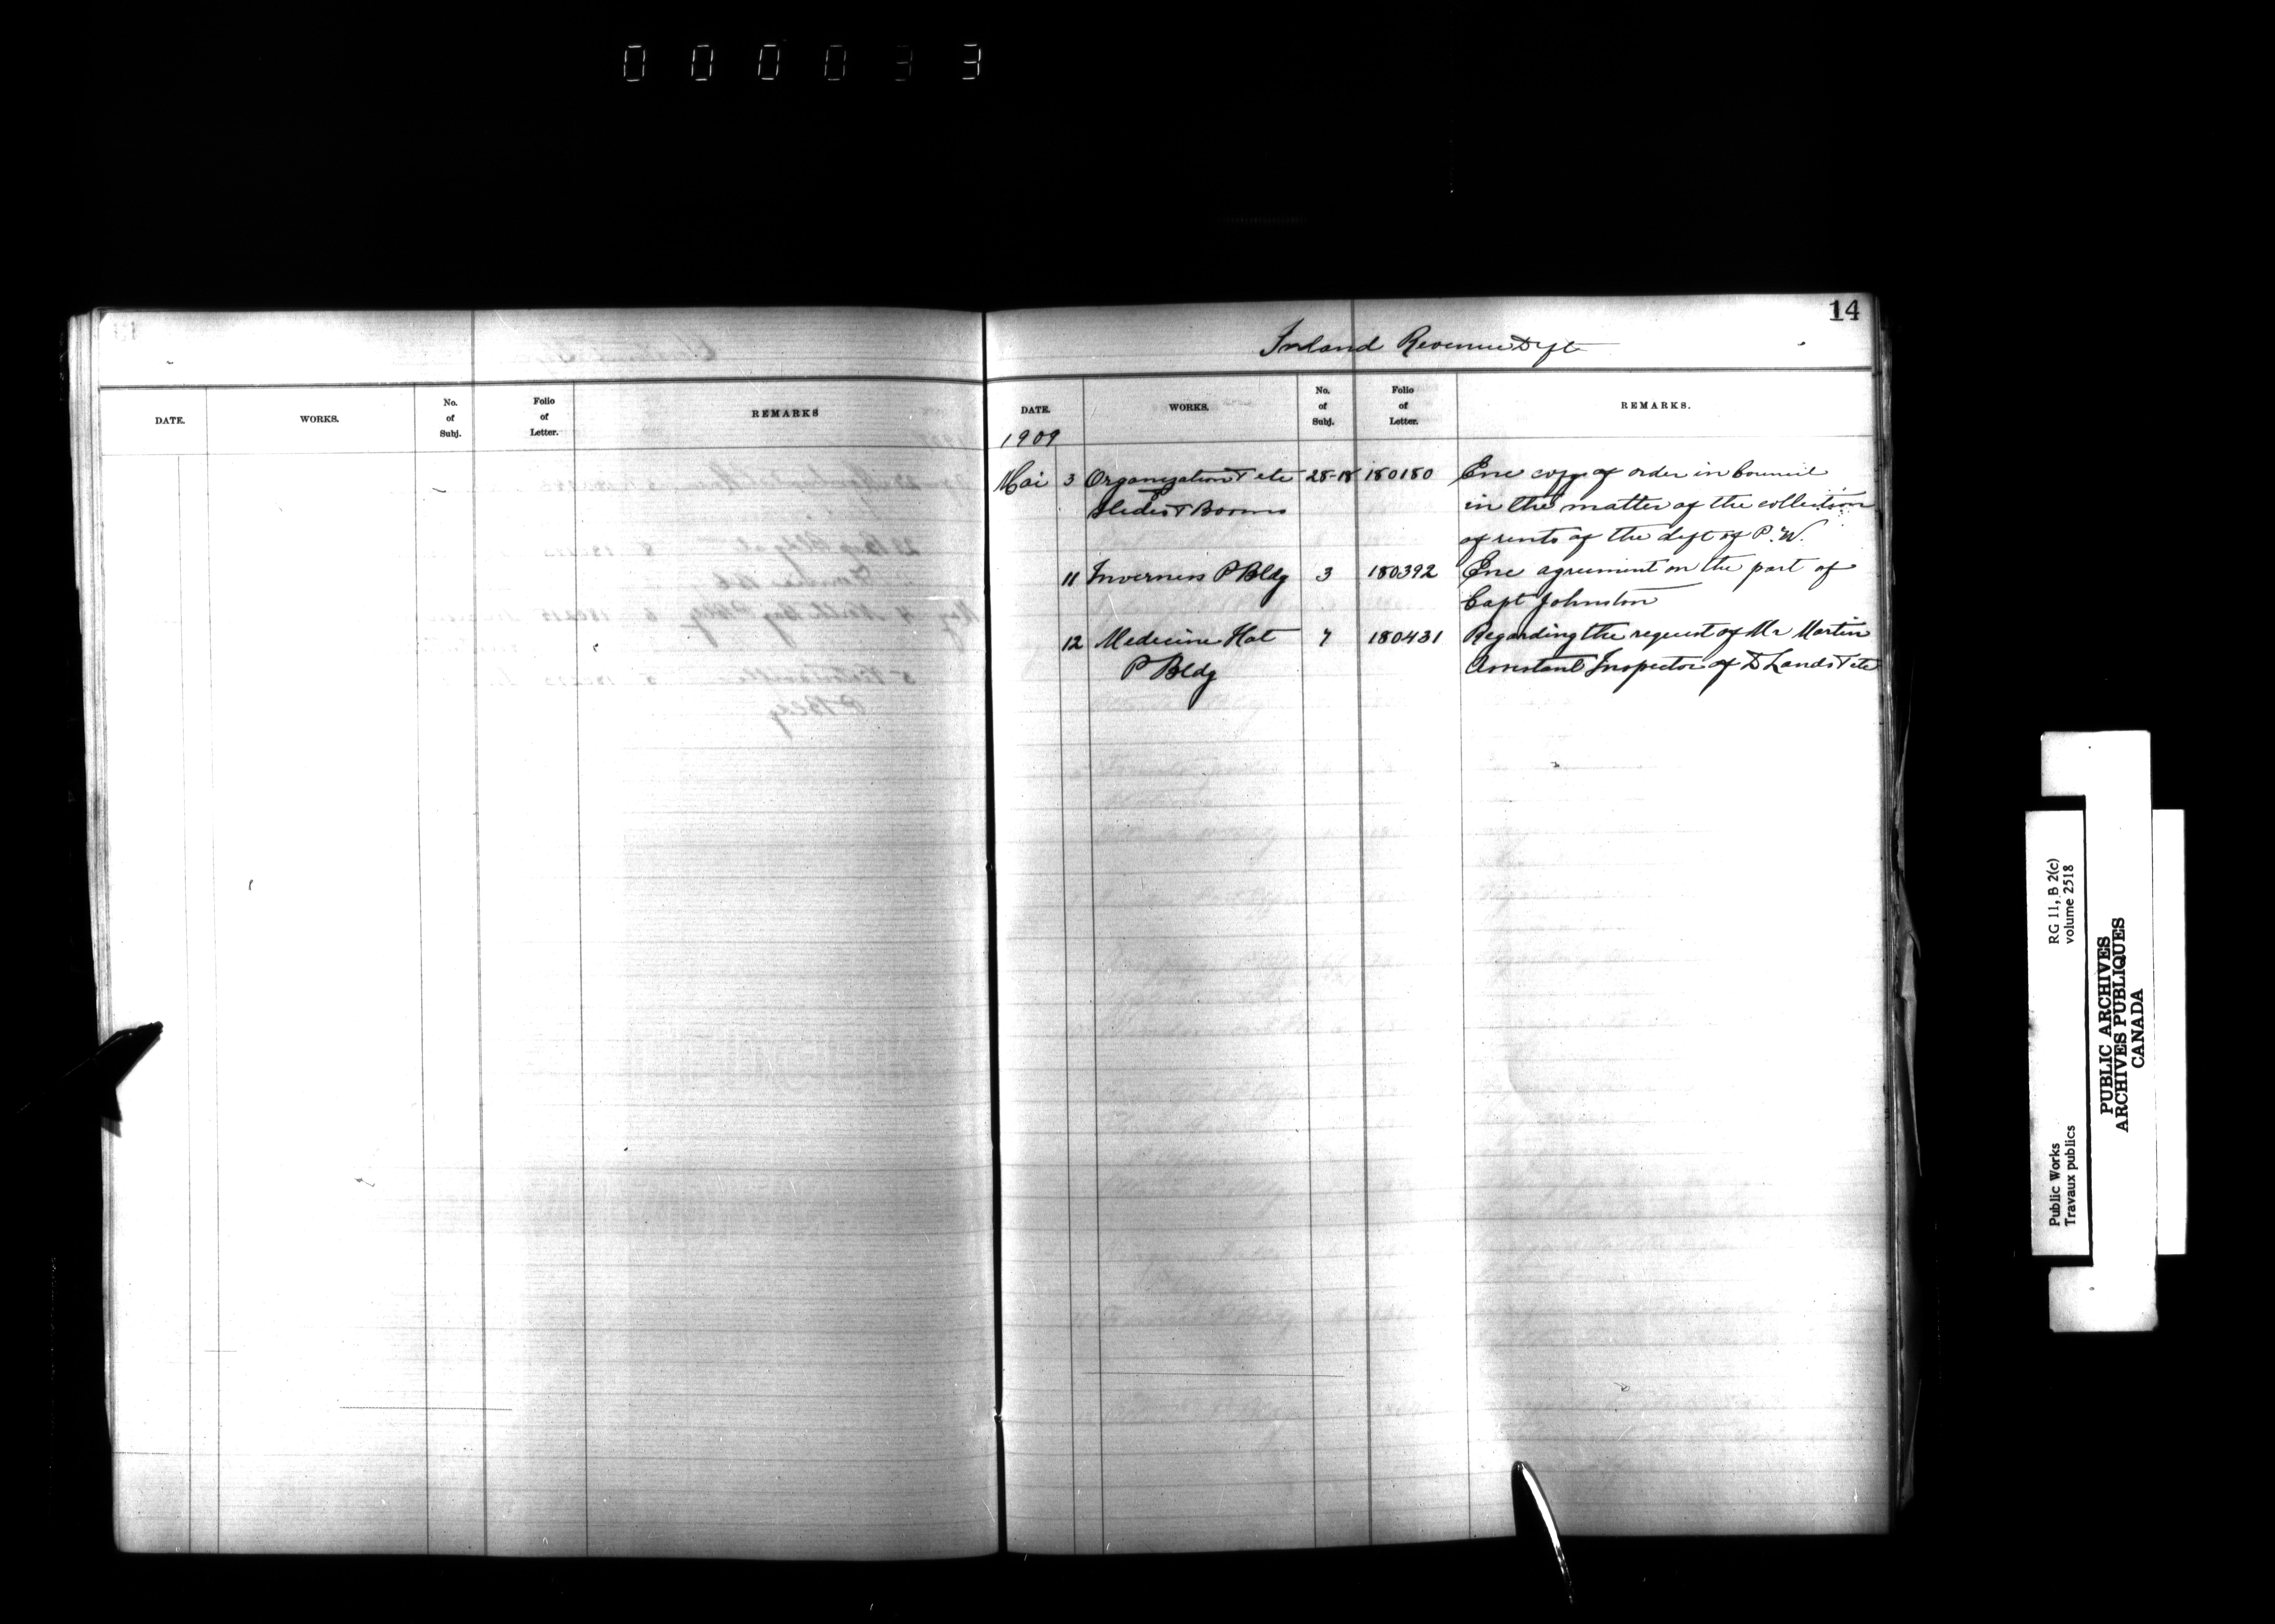 000033
14
Inland Revenue Dept
DATE. WORKS. No. of Subj. Folio of Letter. REMARKS
DATE. WORKS. No. of Subj. Folio of Letter. REMARKS.
1909
Mai 3 Organization & etc 28-18 180180 Enc copy of order in Council
Slides & Booms in the matter of the collection
of rents of the dept of P.W.
11 Inverness P Bldg 3 180392 Enc agreement on the part of
Capt Johnston
12 Medicine Hat 7 180431 Regarding the request of Mr Martin
P Bldg Assistant Inspector of D Lands & etc
Public Works RG 11, B 2(c)
Travaux publics volume 2518
PUBLIC ARCHIVES
ARCHIVES PUBLIQUES
CANADA